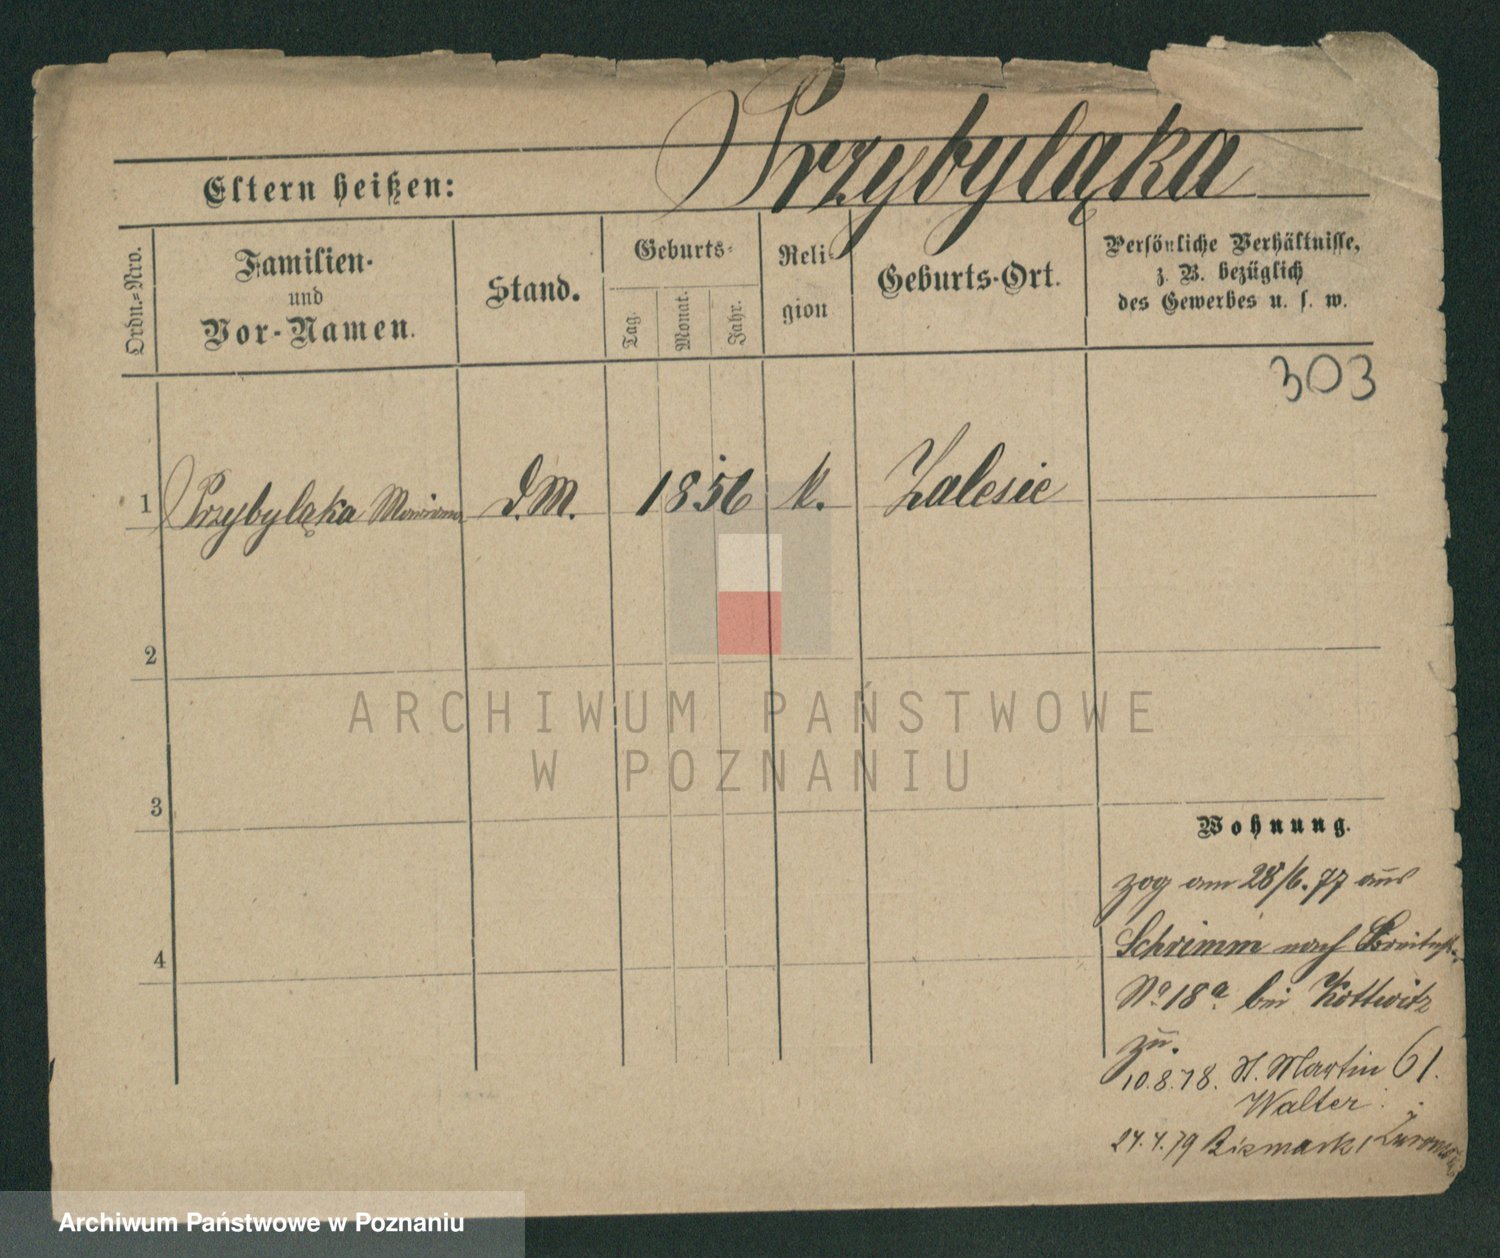 Przybyląka
Eltern heißen:
Ordn.=Nro.
Familien-
und
Vor-Namen.
Stand.
Geburts-
Tag.
Monat.
Jahr.
Reli-
gion
Geburts-Ort.
Persönliche Verhältnisse,
z. B. bezüglich
des Gewerbes u. s. w.
303
1 Przybyląka Marianna D.M. 1856 k. Zalesie
2
3
4
Wohnung.
zog am 28/6. 77 aus
Schrimm nach Breitestr.
No 18a bei Kottwitz
zu.
10.8.78. St. Martin 61.
Walter
24.4.79 Bismarck
ARCHIWUM PAŃSTWOWE
W POZNANIU
Archiwum Państwowe w Poznaniu